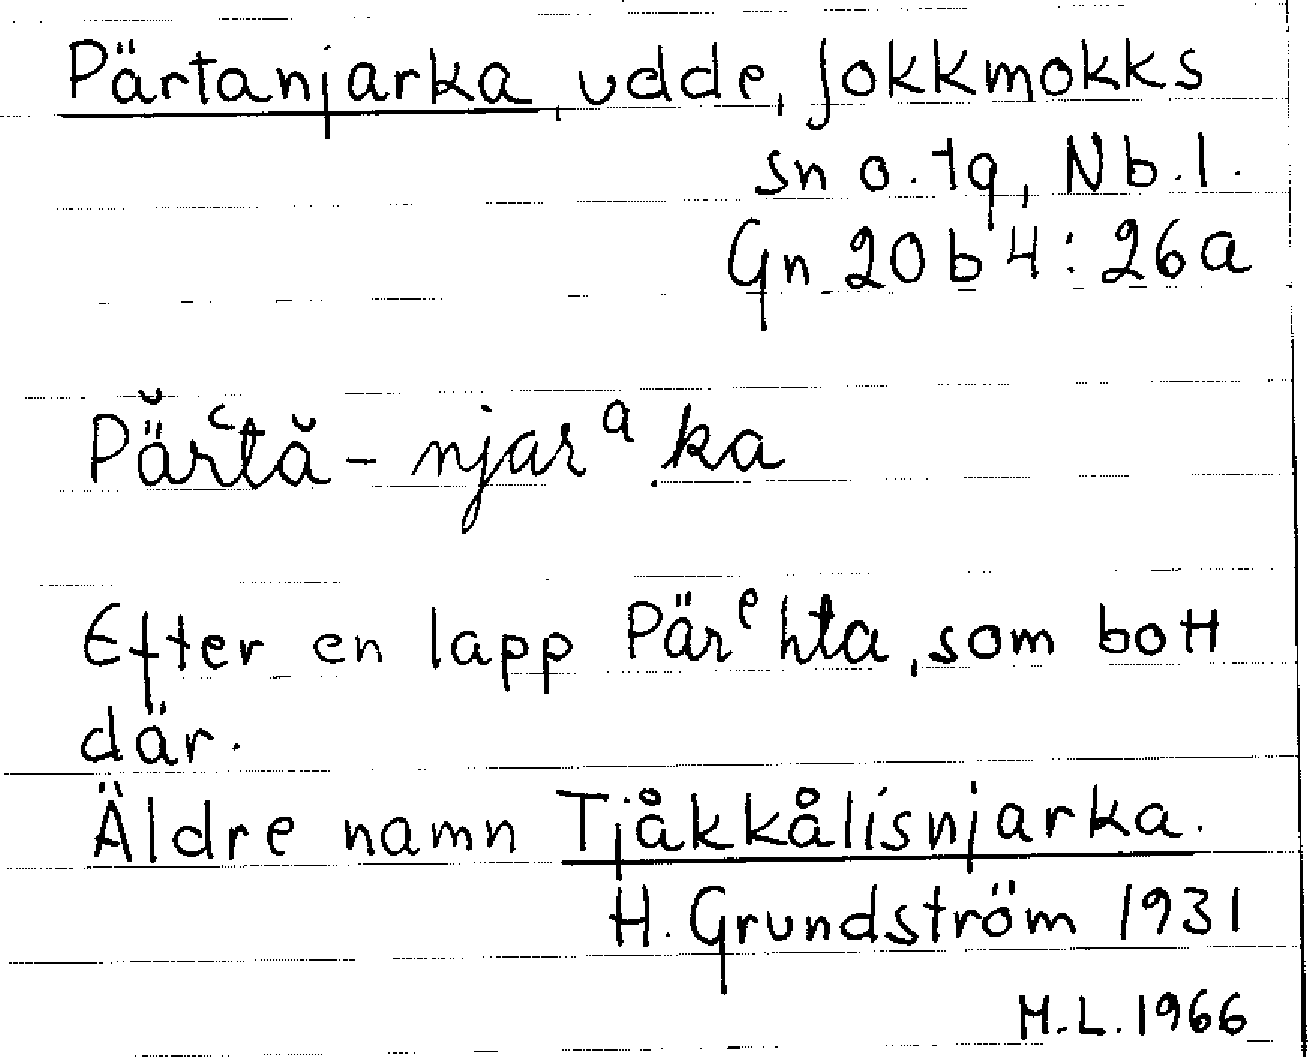 Pärtanjarka, udde, Jokkmokks
sn o. tg, Nb. l.
Gn 20 b 4 : 26 a
Pä̆rʿtă - njarᵃ ka
Efter en lapp Pärᵉhta, som bott
där.
Äldre namn Tjåkkålisnjarka.
H. Grundström 1931
H.L. 1966